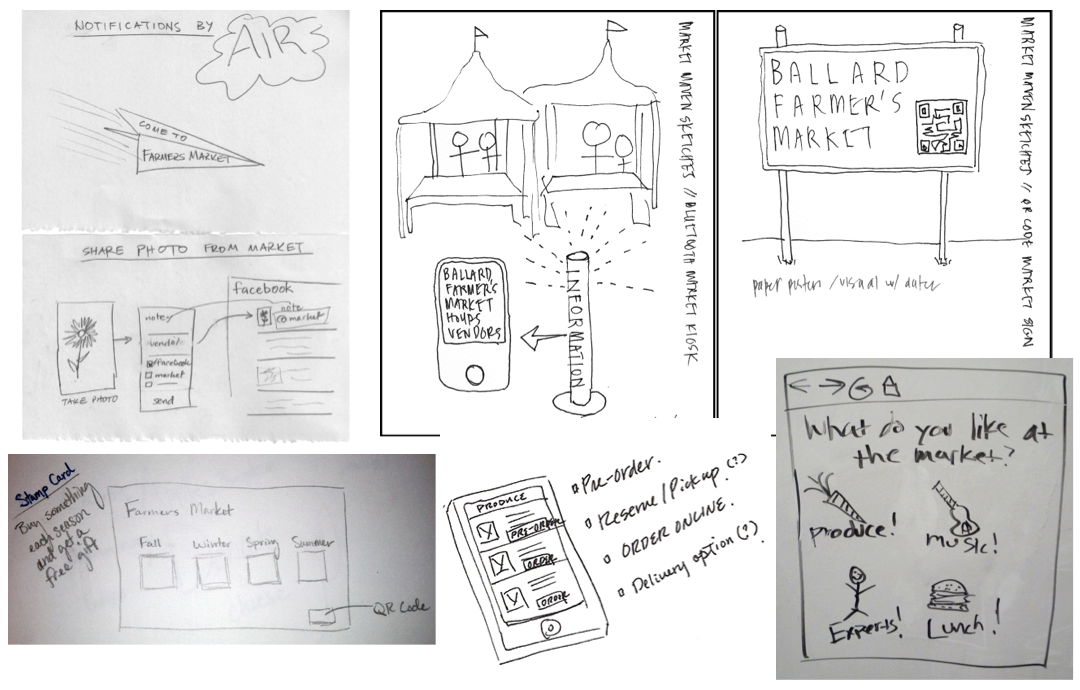 NOTIFICATIONS BY
AIR
COME TO
FARMERS MARKET
SHARE PHOTO FROM MARKET
TAKE PHOTO
note
vendor
facebook
market
send
facebook
note
$
@market
MARKET MAVEN SKETCHES // BLUETOOTH MARKET KIOSK
BALLARD
FARMER'S
MARKET
HOURS
VENDORS
INFORMATION
MARKET MAVEN SKETCHES // QR CODE MARKET SIGN
BALLARD
FARMER'S
MARKET
paper poster / visual w/ dates
Stamp Card
Buy something
each season
and get a
free gift
Farmers Market
Fall Winter Spring Summer
QR Code
PRODUCE
PRE-ORDER
ORDER
ORDER
Pre-order.
Reserve/Pickup (?)
ORDER ONLINE.
Delivery option (?).
What do you like at
the market?
produce! music!
Experts! Lunch!